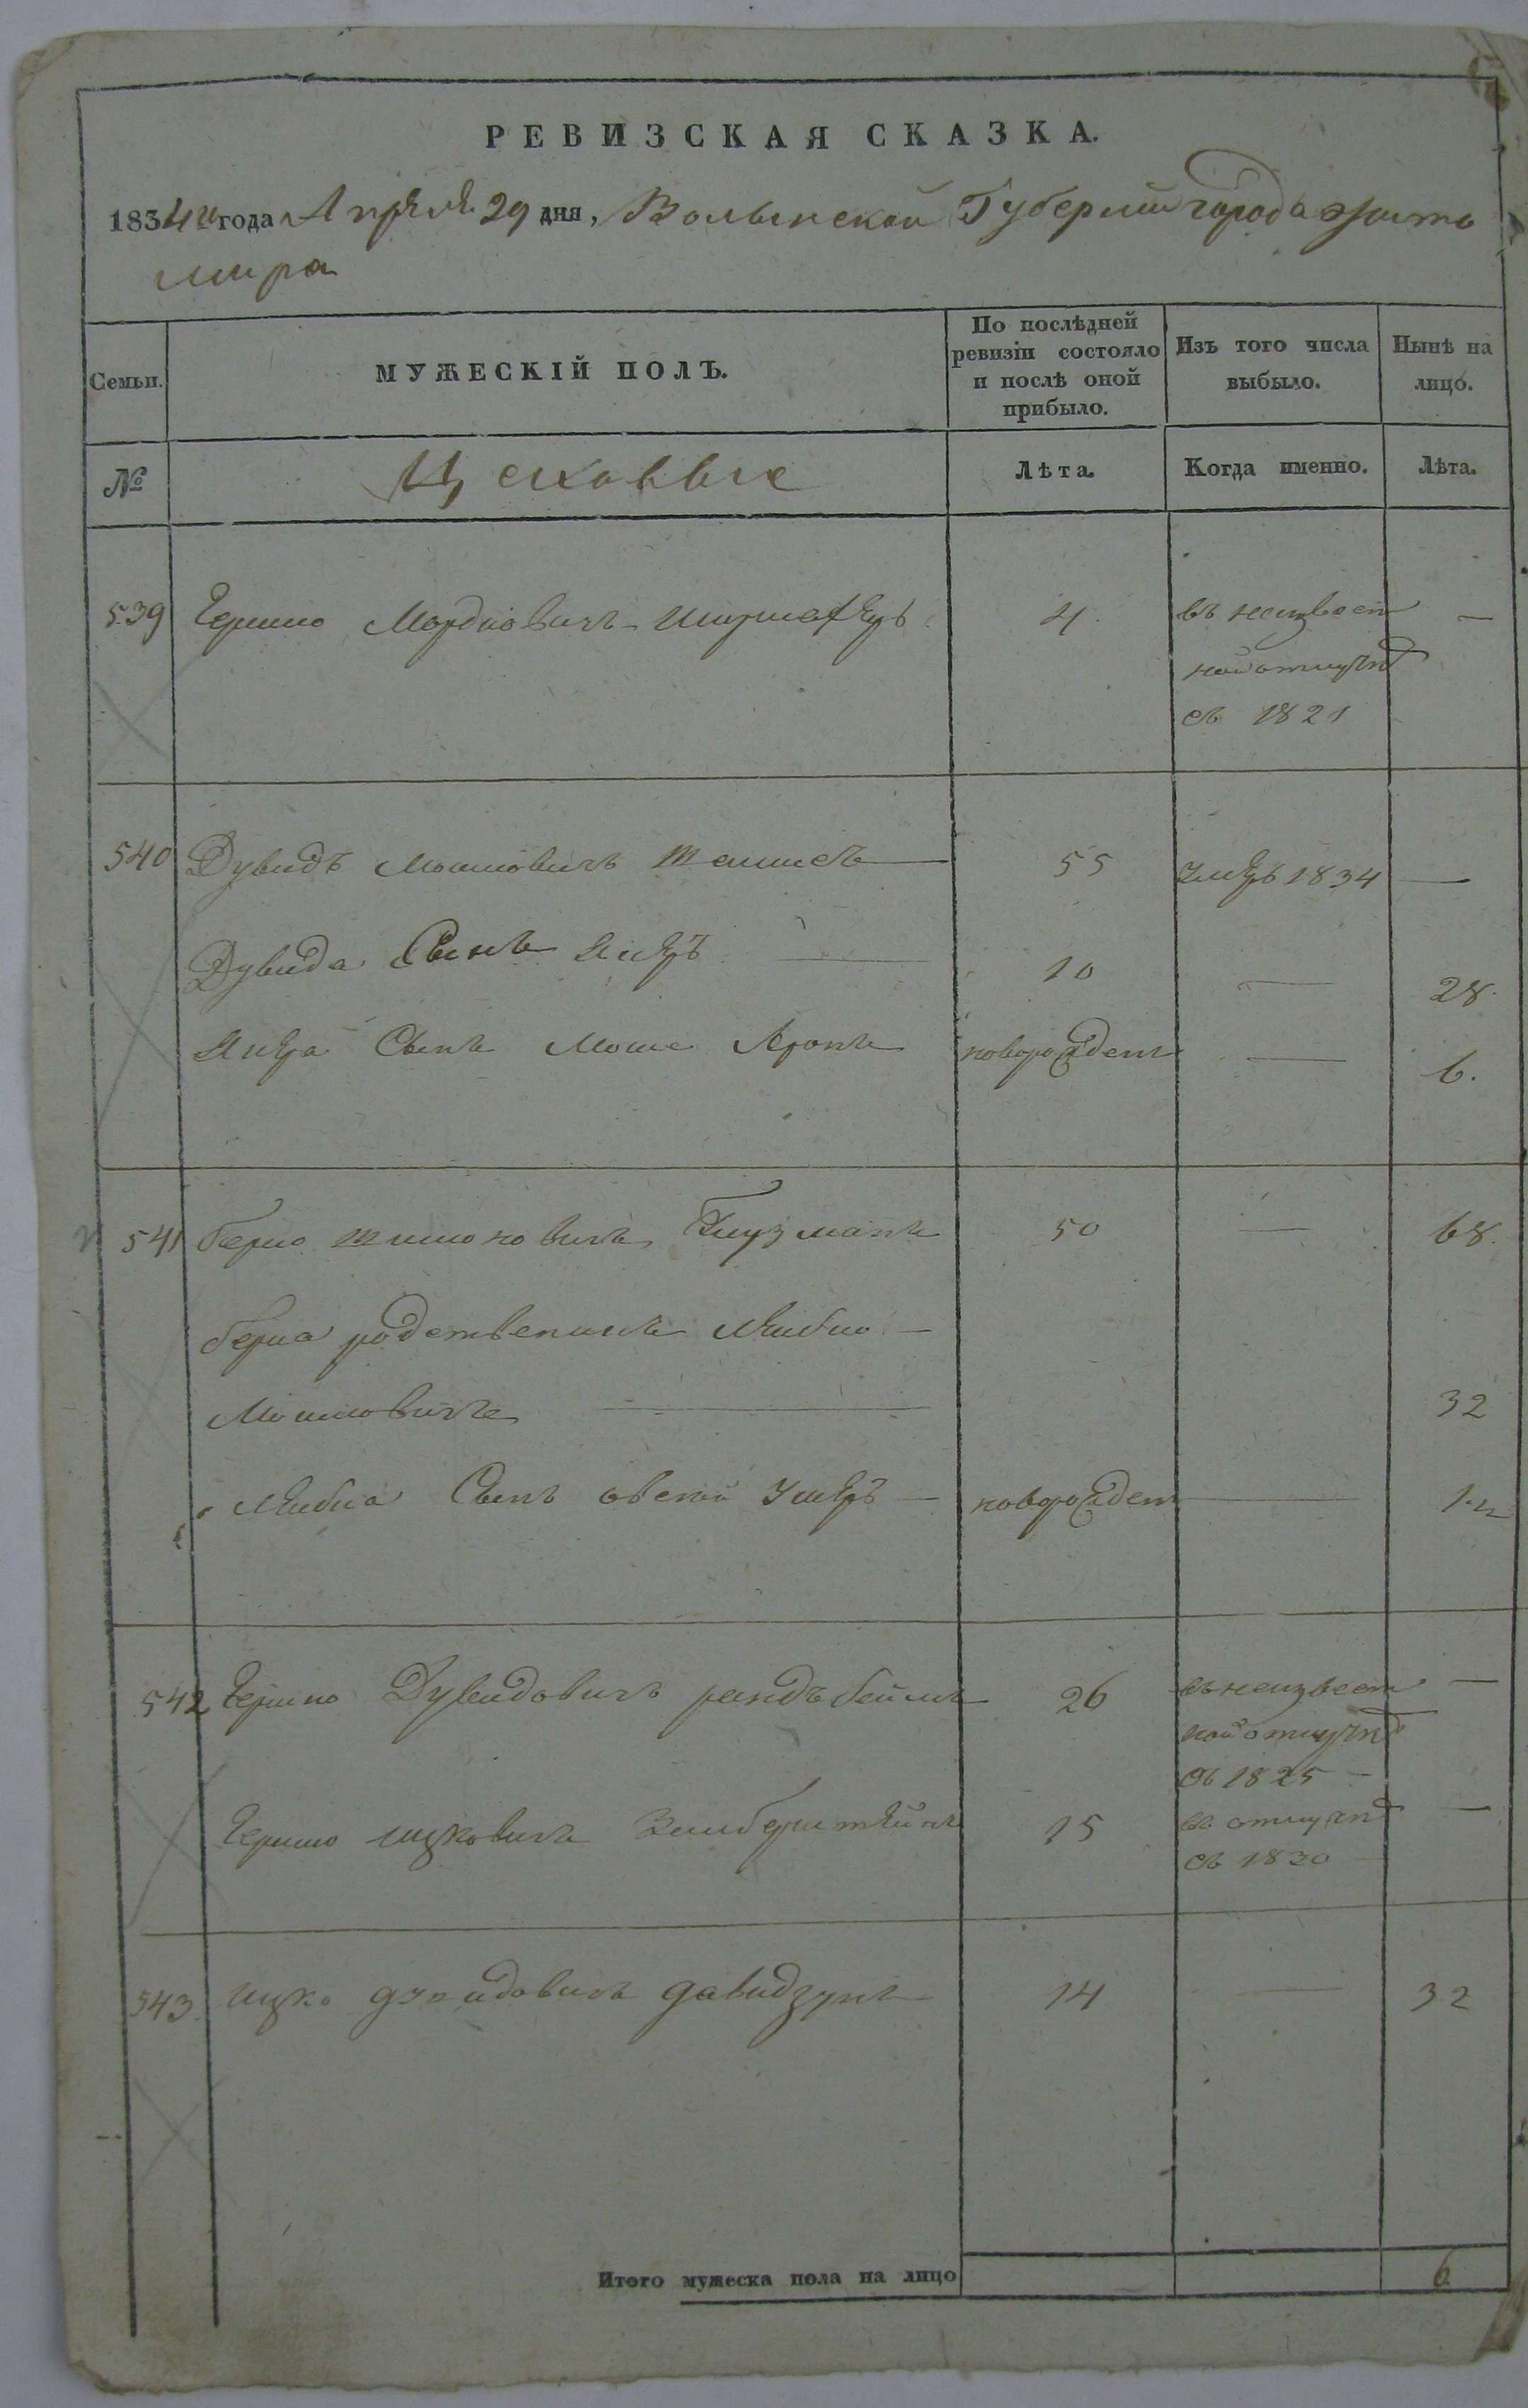 РЕВИЗСКАЯ СКАЗКА.
1834 го года Апрѣля 29 дня, Волынской Губернии города Жито
мира
Семьи.
МУЖЕСКІЙ ПОЛЪ.
По послѣдней
ревизіи состояло
и послѣ оной
прибыло.
Изъ того числа
выбыло.
Нынѣ на
лицо.
№
Цеховые
Лѣта.
Когда именно.
Лѣта.
539 Гершко Мордковичъ 4 въ неизвест —
ной отлучкѣ
съ 1821
540 Дувидъ Мошковичъ 55 умѣръ 1834 —
Дувида Сынъ 10 — 28.
Сынъ Моше Аронъ новорожденъ — 6.
541 Берко Шимоновичъ Глузманъ 50 — 68.
Берка родственникъ Лейбко —
Мошковичъ — 32
Лейбка Сынъ Умѣръ — новорожден — 1 ½
542 Гершко Дувидовичъ 26 въ неизвест —
ной отлучкѣ
съ 1825 —
Гершко Ицковичъ Зильберштейнъ 15 въ отлучкѣ —
съ 1830
543 Ицко Дувидовичъ Давидзунъ 14 — 32
Итого мужеска пола на лицо 6